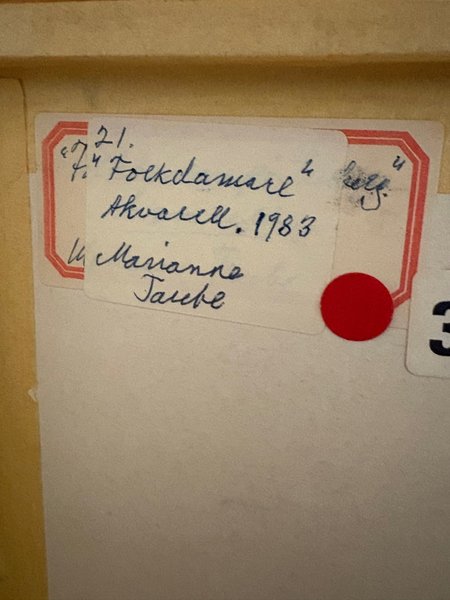 21.
"Folkdansare"
Akvarell. 1983
Marianne
Taube
3